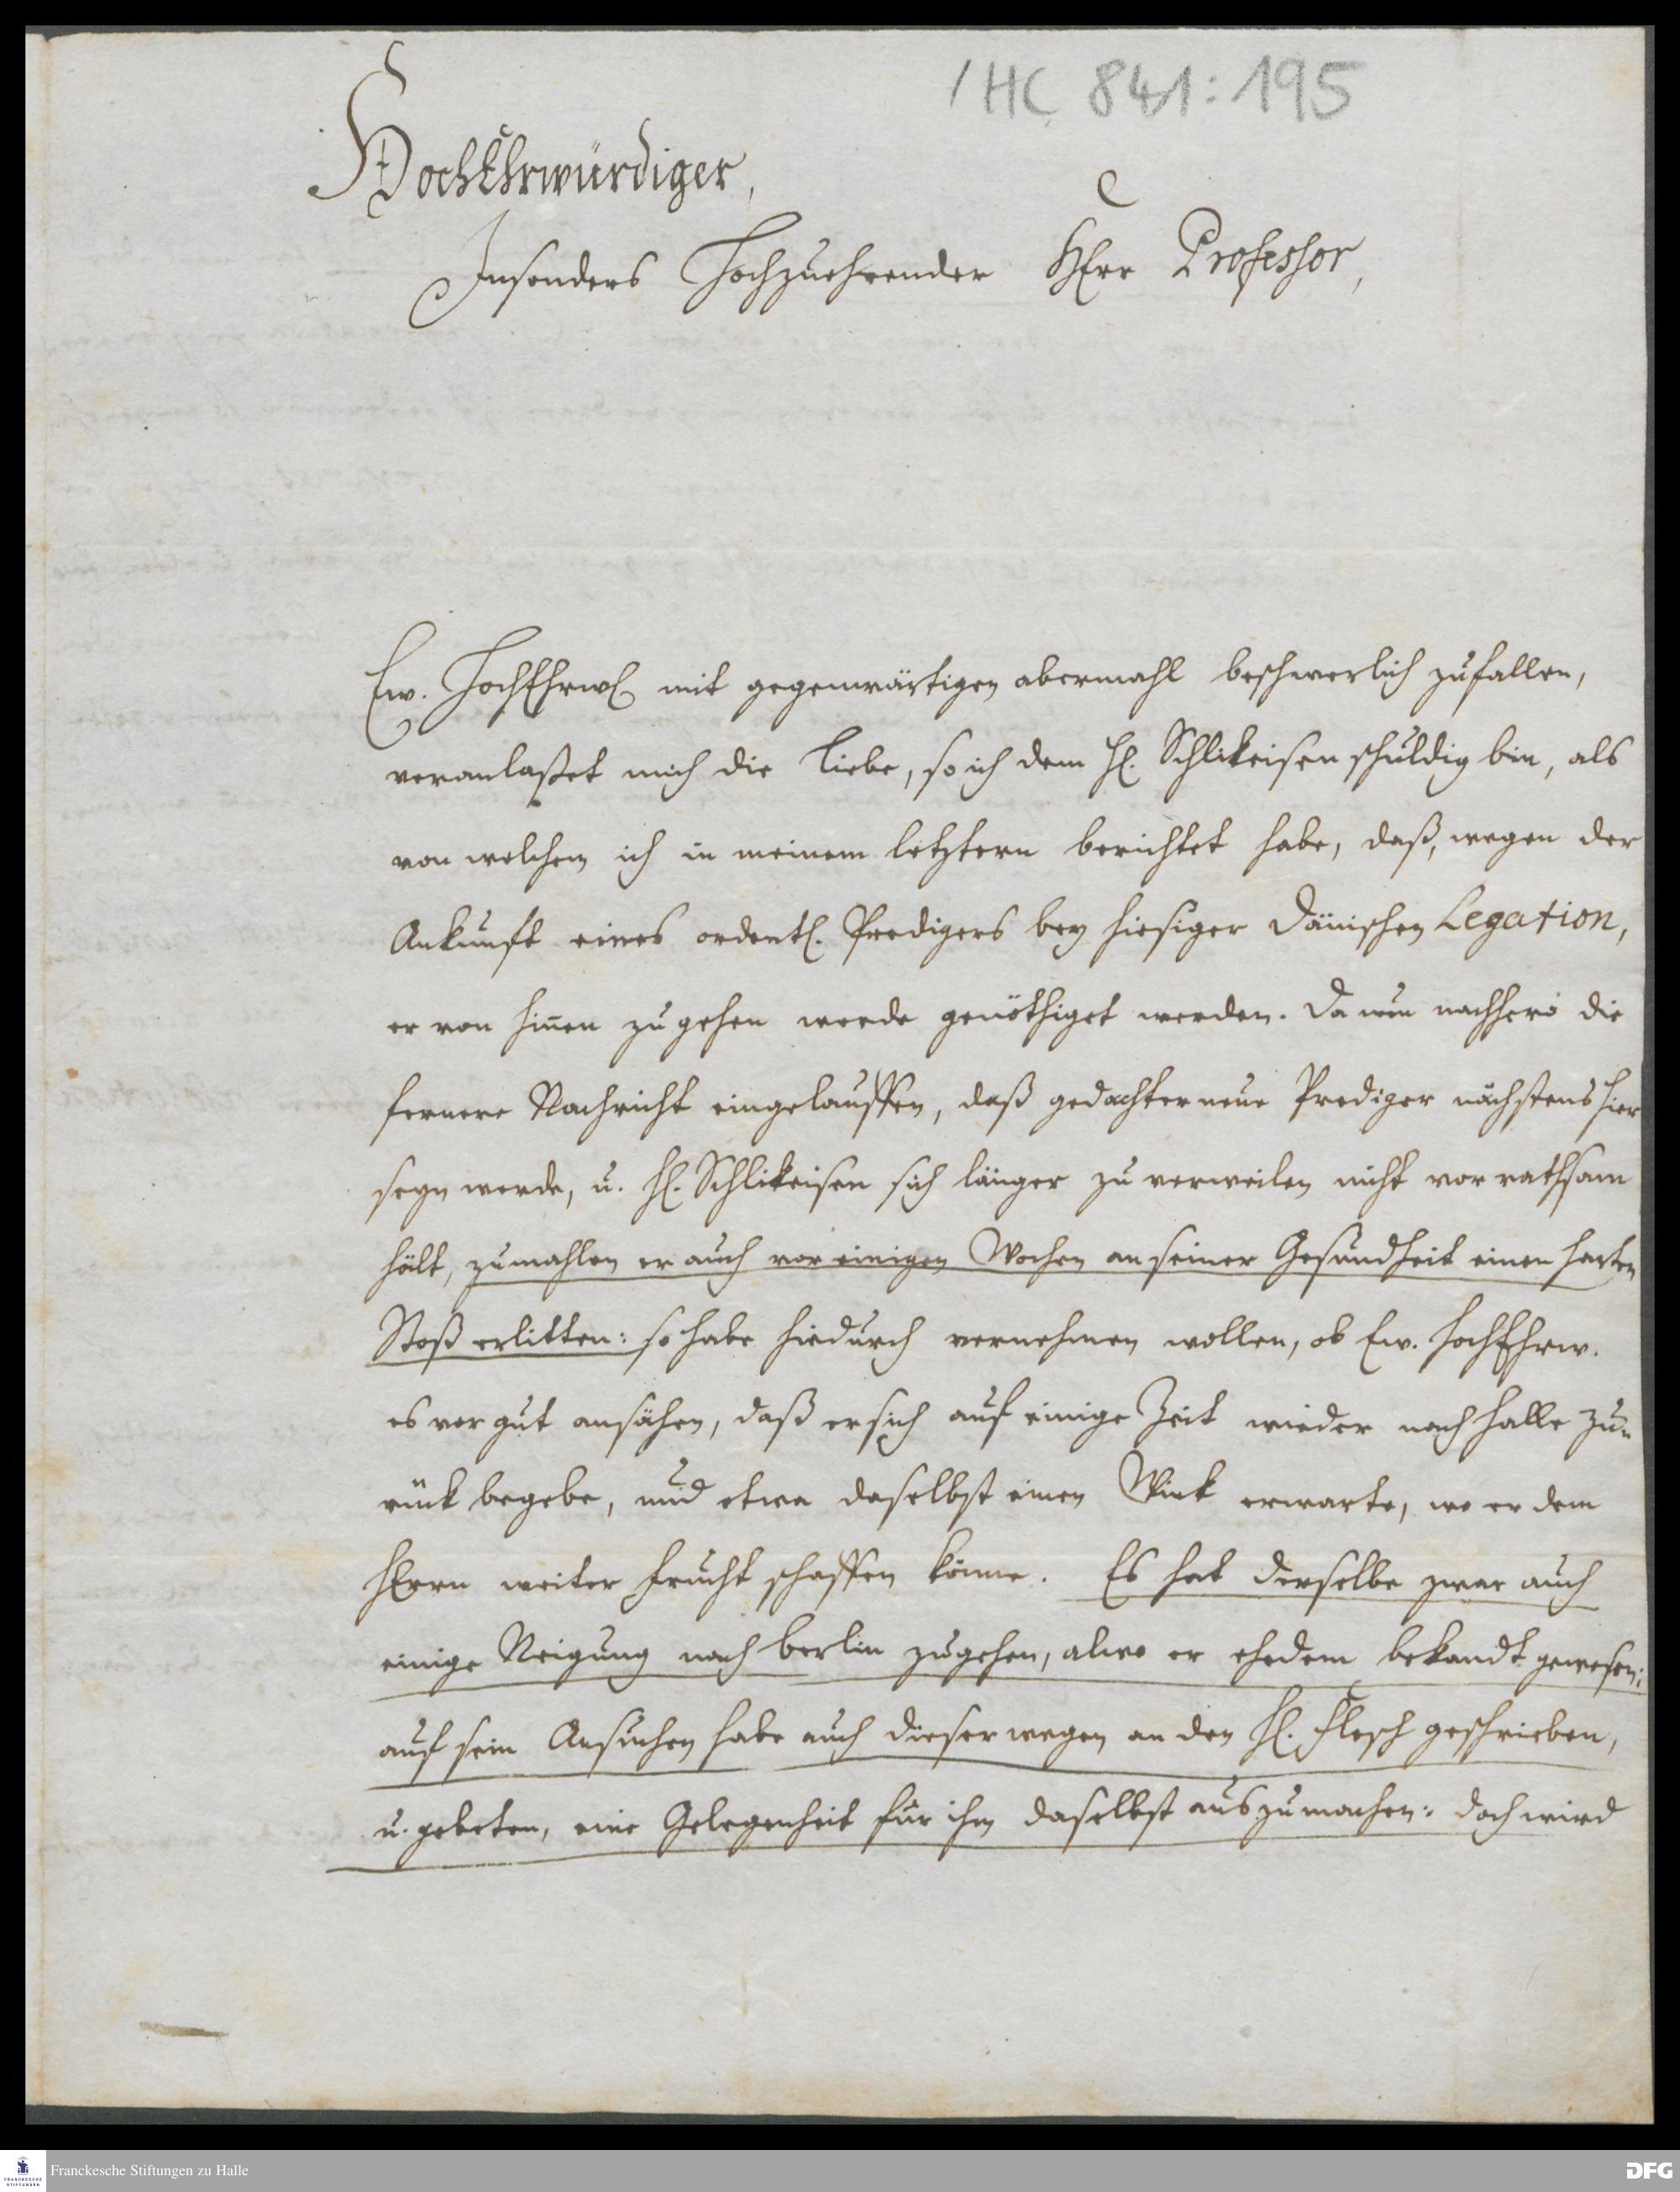 /HC 841:195
HochEhrwürdiger,
Insonders Hochzuehrender HErr Professor,
Ew. HochEhrw. mit gegenwärtigen abermahl beschwerlich zufallen,
veranlaßet mich die Liebe, so ich dem H. Schlikeisen schuldig bin, als
von welchem ich in meinem letztern berichtet habe, daß, wegen der
Ankunft eines ordentl. Predigers bey hiesiger Dänischen Legation,
er von hinnen zu gehen werde genöthiget werden. Da nun nachhero die
fernere Nachricht eingelauffen, daß gedachter neue Prediger nächstens hier
seyn werde, u. H. Schlikeisen sich länger zu verweilen nicht vor rathsam
hält, zumahlen er auch vor einigen Wochen an seiner Gesundheit einen harten
Stoß erlitten: so habe hiedurch vernehmen wollen, ob Ew. HochEhrw.
es vor gut ansähen, daß er sich auf einige Zeit wieder nach Halle zu-
rück begebe, und etwa daselbst einen Wink erwarte, wo er dem
HErrn weiter Frucht schaffen könne. Es hat derselbe zwar auch
einige Neigung nach Berlin zugehen, alwo er ehedem bekandt gewesen:
auf sein Ansuchen habe auch dieserwegen an den H. Flesch geschrieben,
u. gebeten, eine Gelegenheit für ihn daselbst auszumachen: doch wird
Franckesche Stiftungen zu Halle
FRANCKESCHE
STIFTUNGEN
DFG